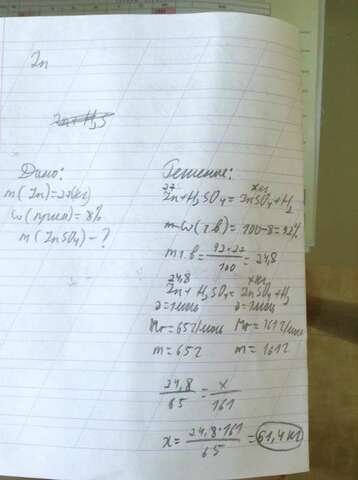 Zn
Zn + H2S
Дано:
m(Zn)=27(кг)
ω(прим)=8%
m(ZnSO4)-?
Решение:
27 x кг
Zn+H2SO4=ZnSO4+H2
ω(ч.в)=100-8=92%
m ч.в=92·27/100=24,8
24,8 x кг
Zn+H2SO4=ZnSO4+H2
ν=1моль ν=1моль
Mr=65г/моль Mr=161г/моль
m=65г m=161г
24,8/65=x/161
x=24,8·161/65=61,4кг